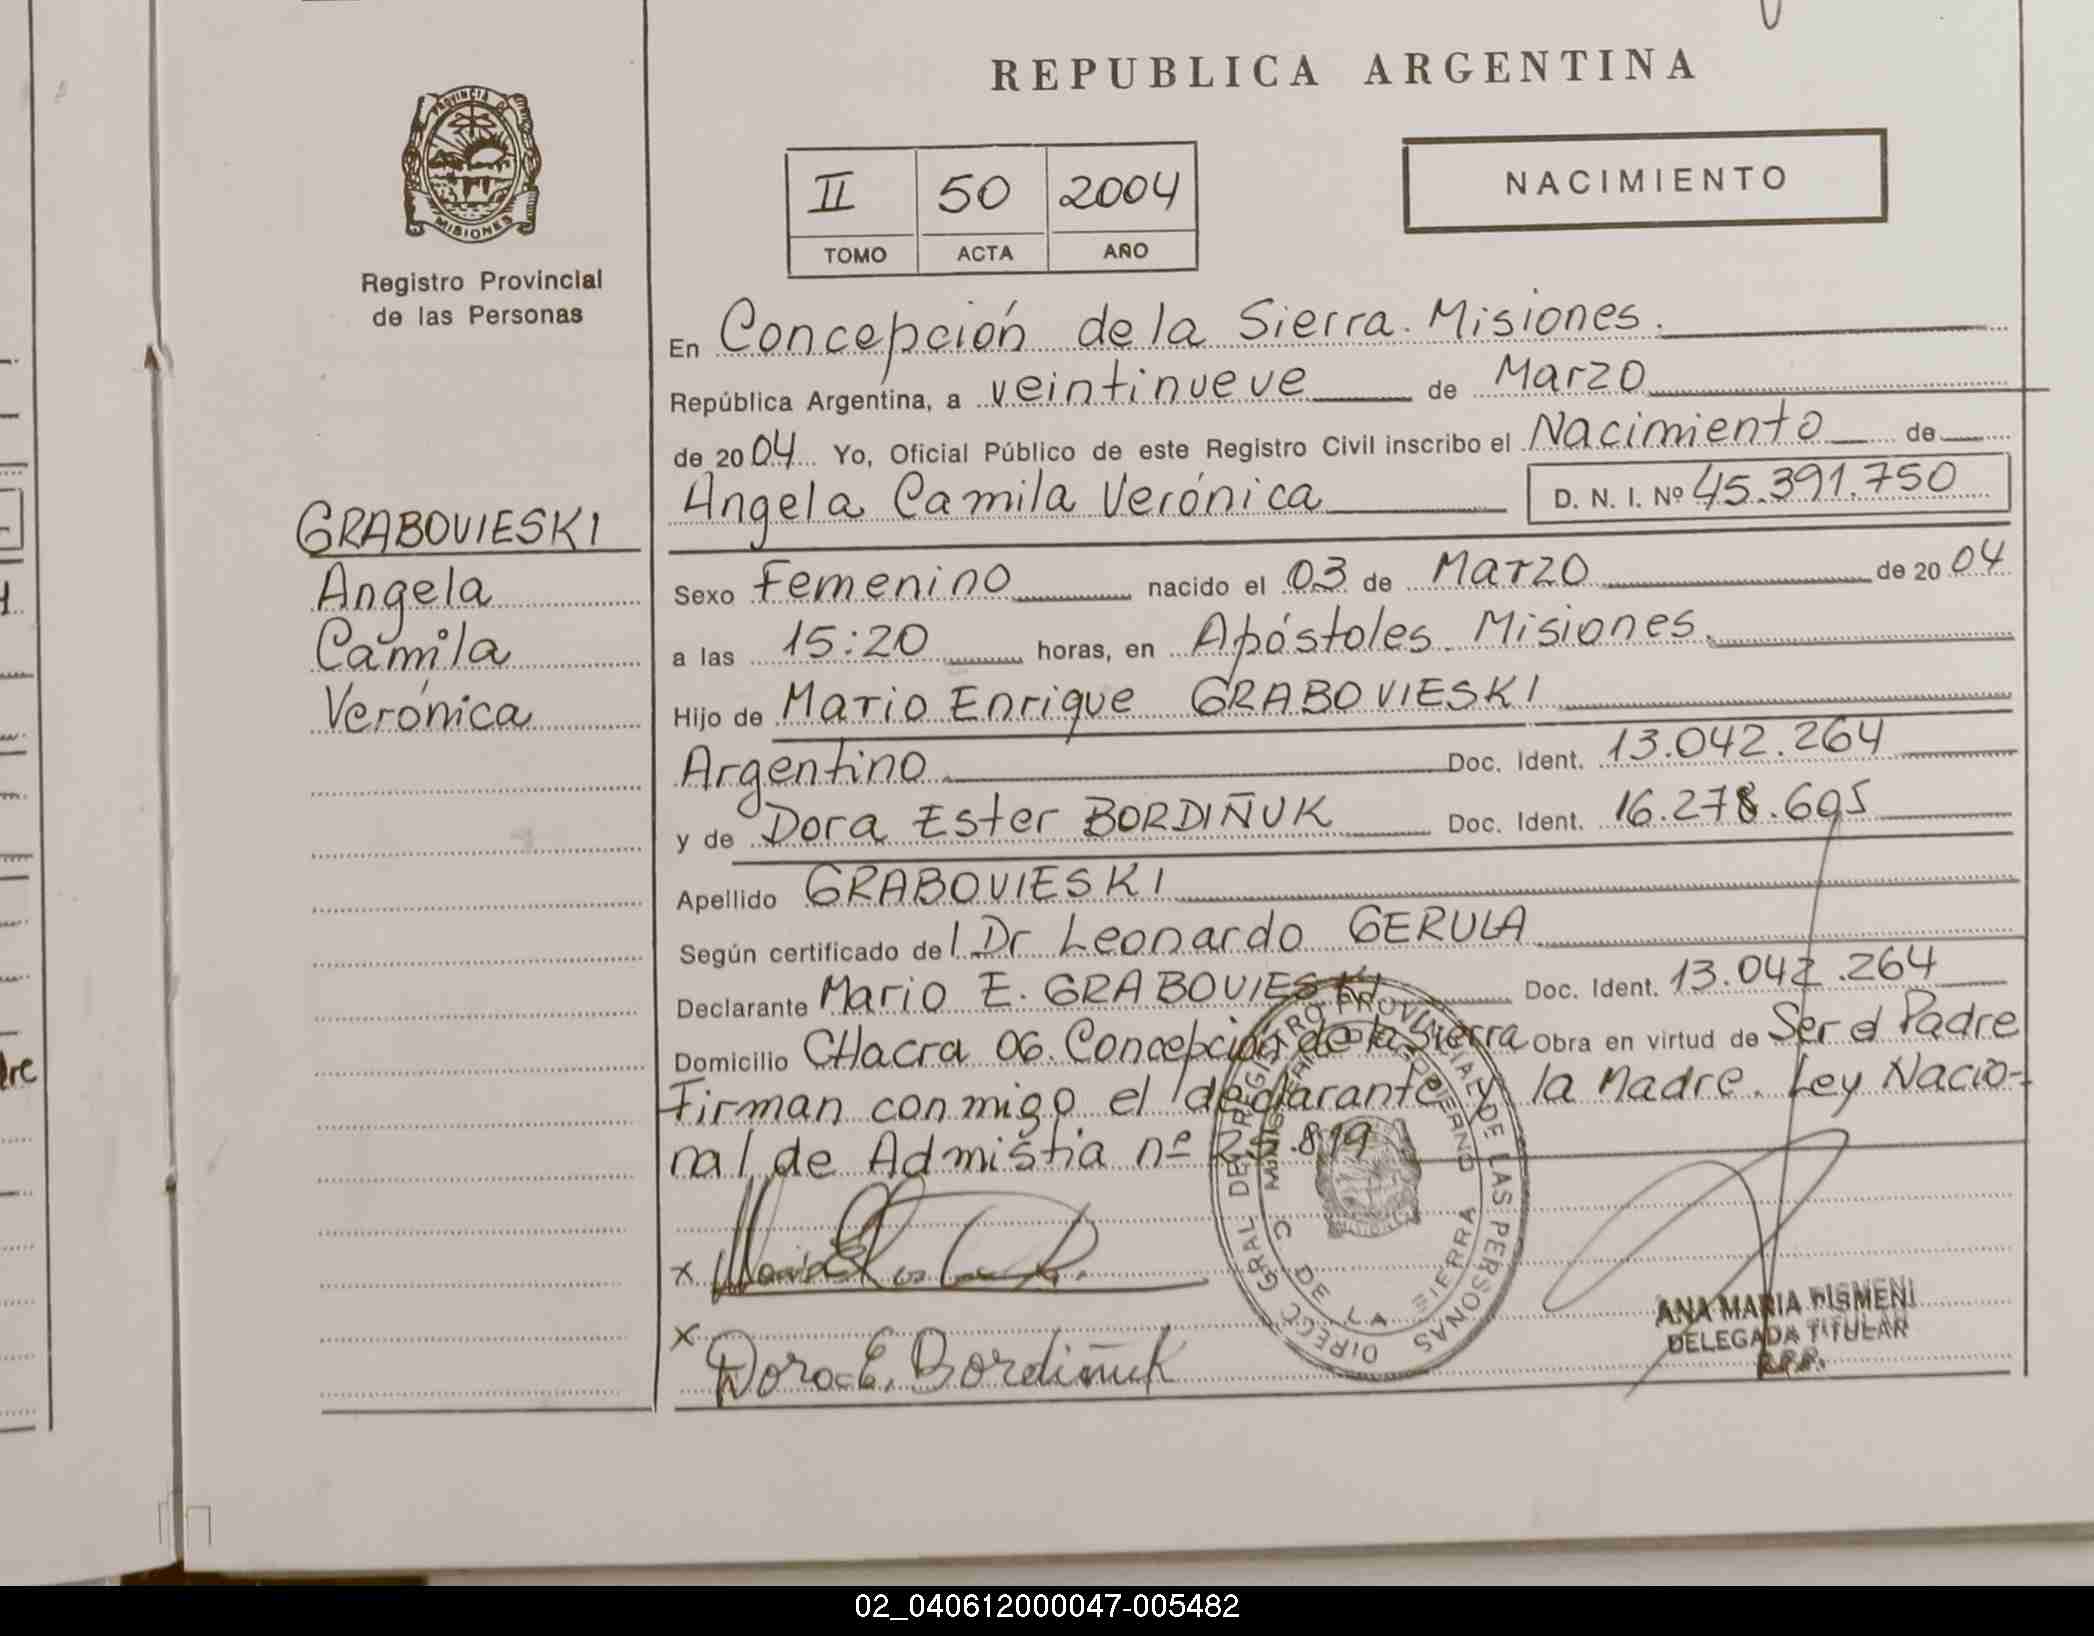 REPUBLICA ARGENTINA
PROVINCIA DE
MISIONES
Registro Provincial
de las Personas
II 50 2004
TOMO ACTA AÑO
NACIMIENTO
En Concepción de la Sierra. Misiones.
República Argentina, a veintinueve de Marzo
de 2004 Yo, Oficial Público de este Registro Civil inscribo el Nacimiento de
Angela Camila Verónica D. N. I. Nº 45.391.750
GRABOVIESKI
Angela
Camila
Verónica
Sexo Femenino nacido el 03 de Marzo de 2004
a las 15:20 horas, en Apóstoles. Misiones.
Hijo de Mario Enrique GRABOVIESKI
Argentino Doc. Ident. 13.042.264
y de Dora Ester BORDIÑUK Doc. Ident. 16.278.695
Apellido GRABOVIESKI
Según certificado del Dr Leonardo GERULA
Declarante Mario E. GRABOVIESKI Doc. Ident. 13.042.264
Domicilio CHacra 06. Concepción de la Sierra Obra en virtud de Ser el Padre
Firman conmigo el declarante y la Madre. Ley Nacio-
nal de Admistia nº .819
x
x Dora E. Bordiñuk
DIRECC GRAL DEL REGISTRO PROVINCIAL DE LAS PERSONAS
MINISTERIO DE GOBIERNO
C DE LA SIERRA
ANA MARIA PISMENI
DELEGADA TITULAR
R.P.P.
02_040612000047-005482